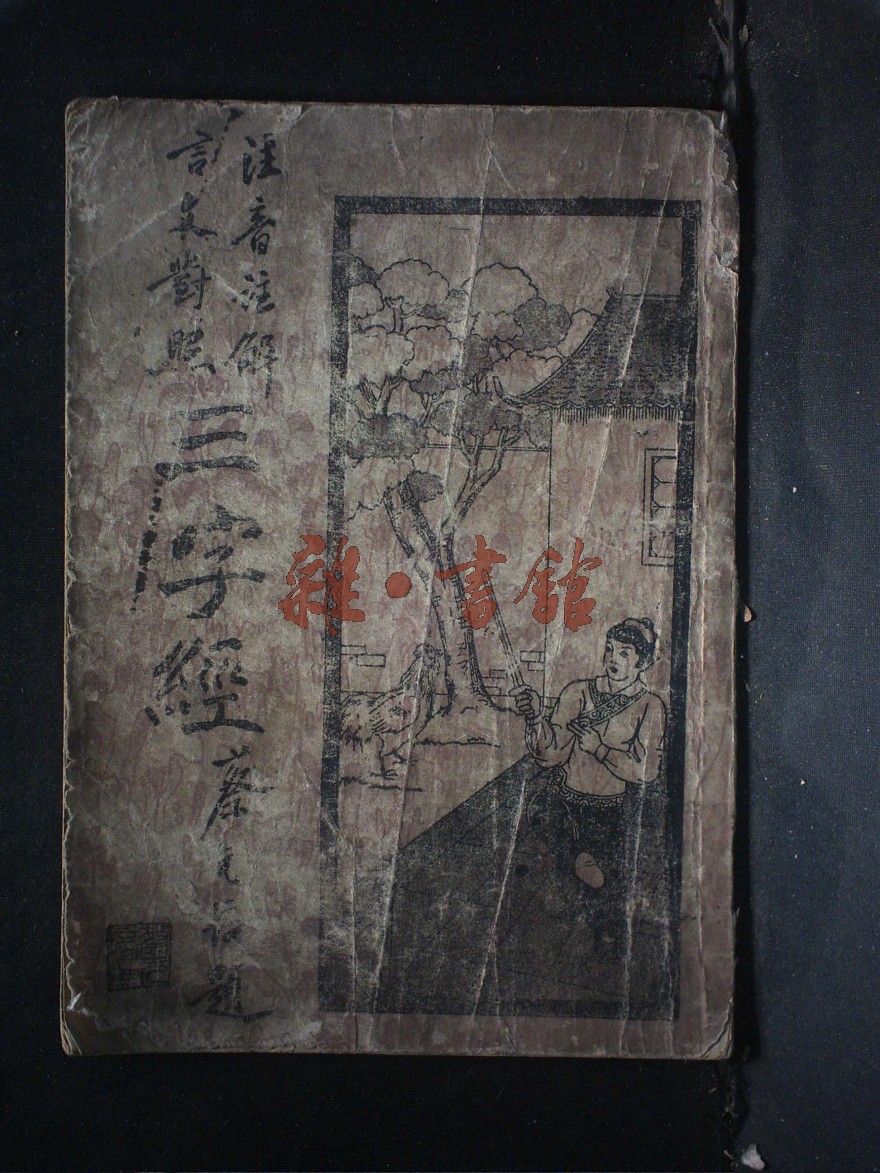 注音注解
言文對照
三字經
蔡元培題
雜·書館